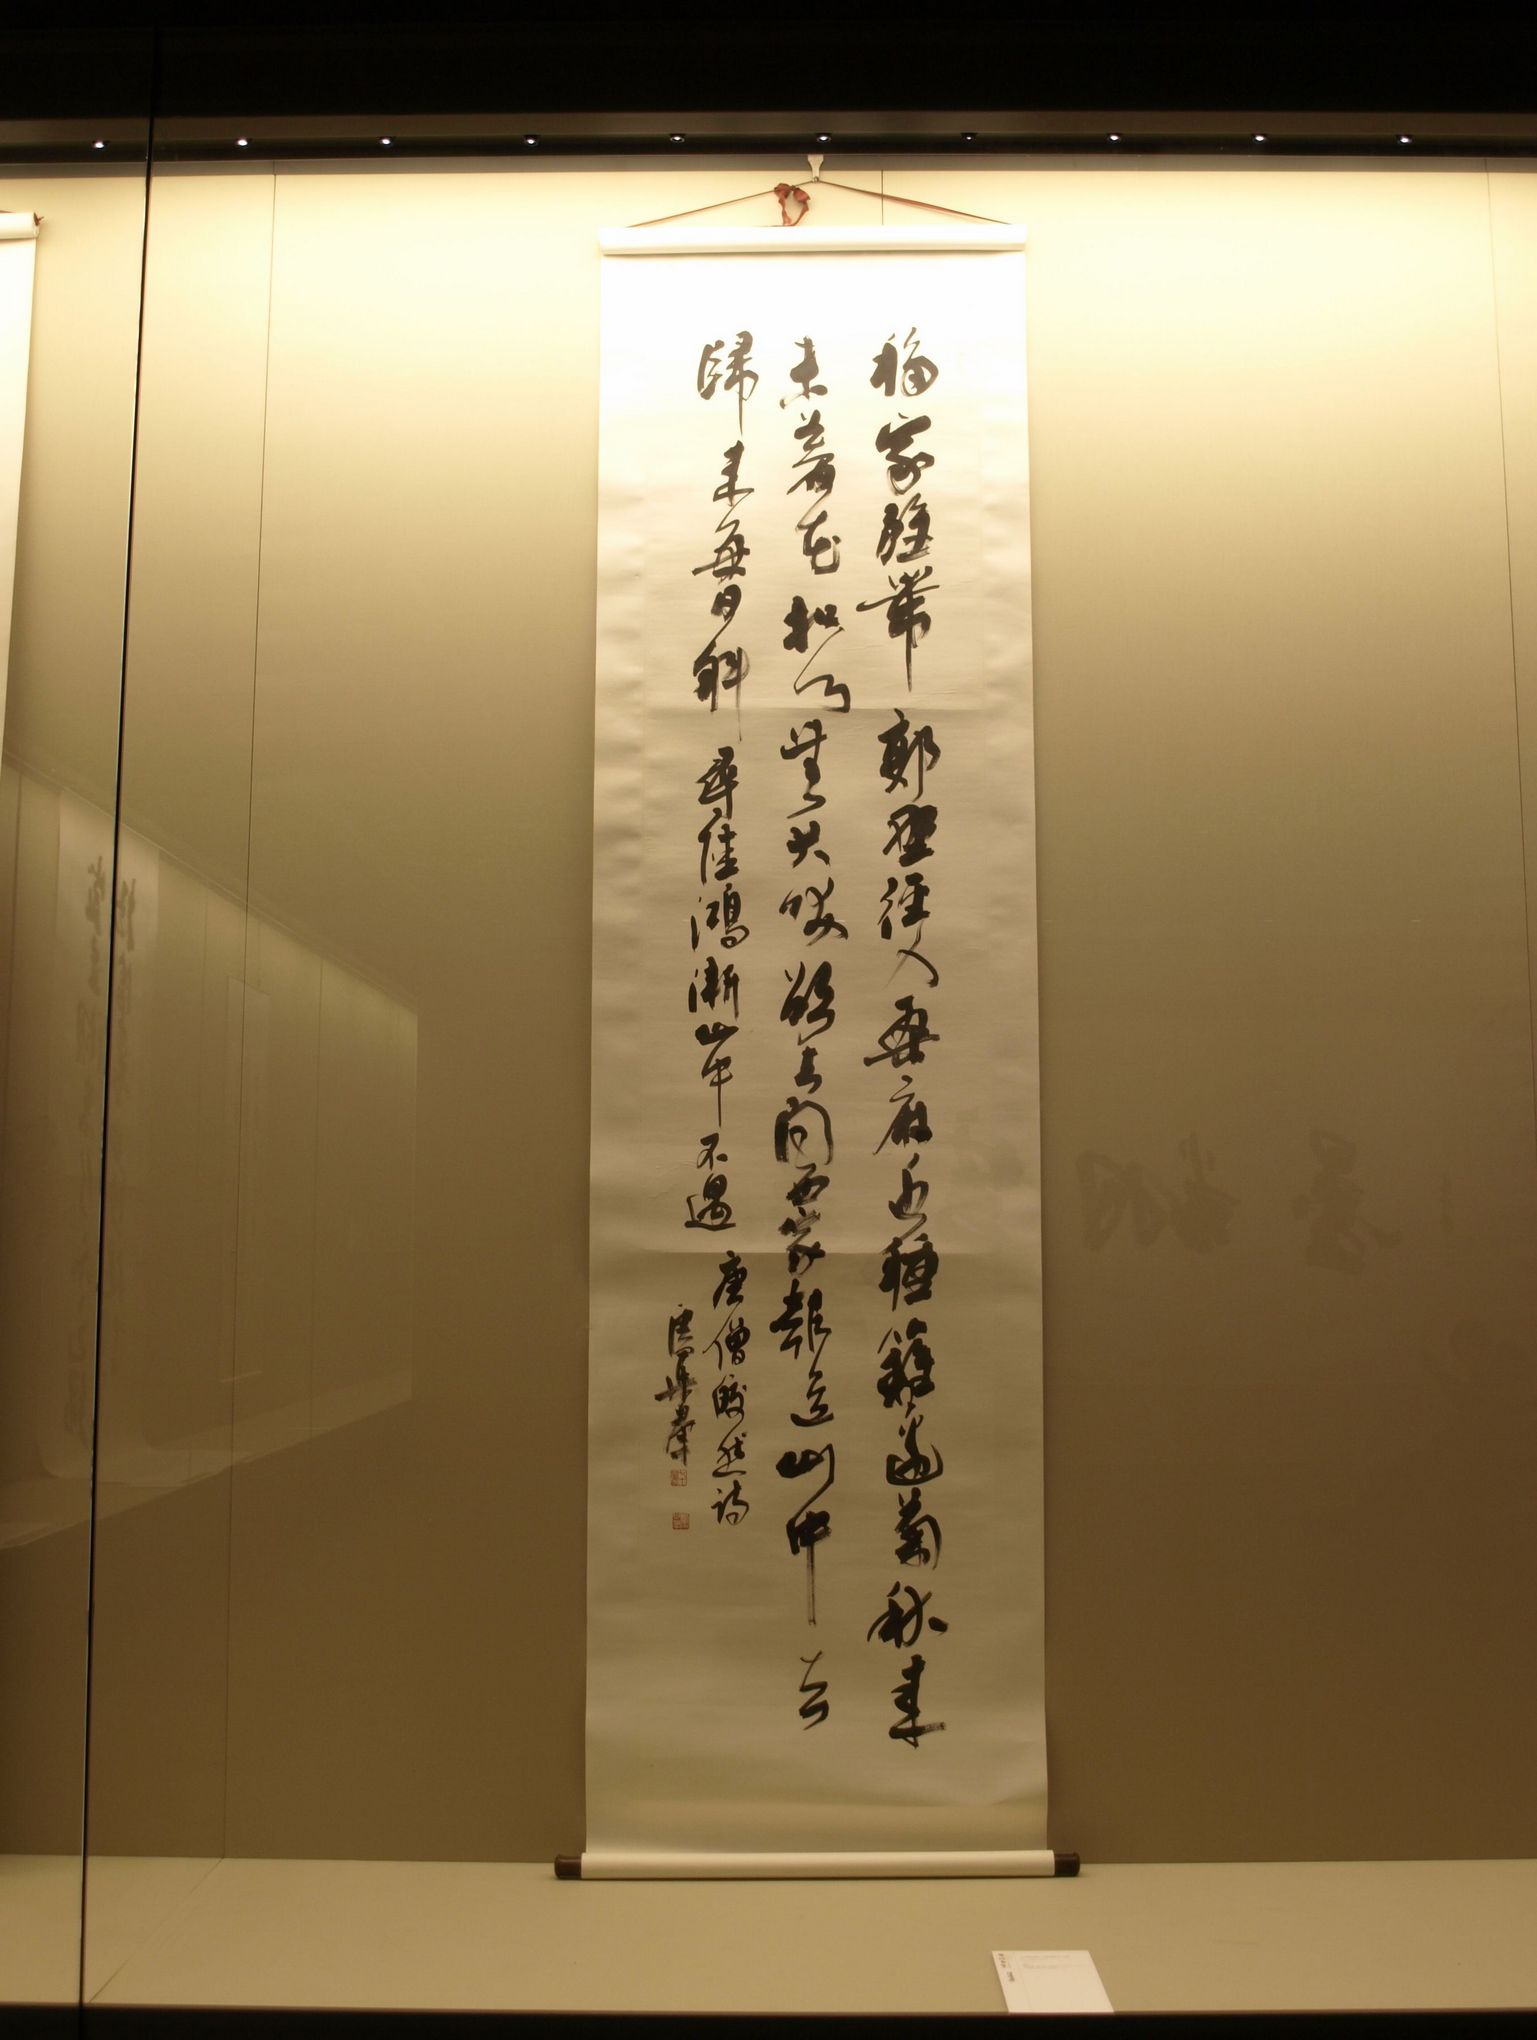 移家雖帶郭野徑入桑麻近種籬邊菊秋來
未著花扣門無犬吠欲去問西家報道山中去
歸來每日斜尋陸鴻漸山中不遇唐僧皎然詩